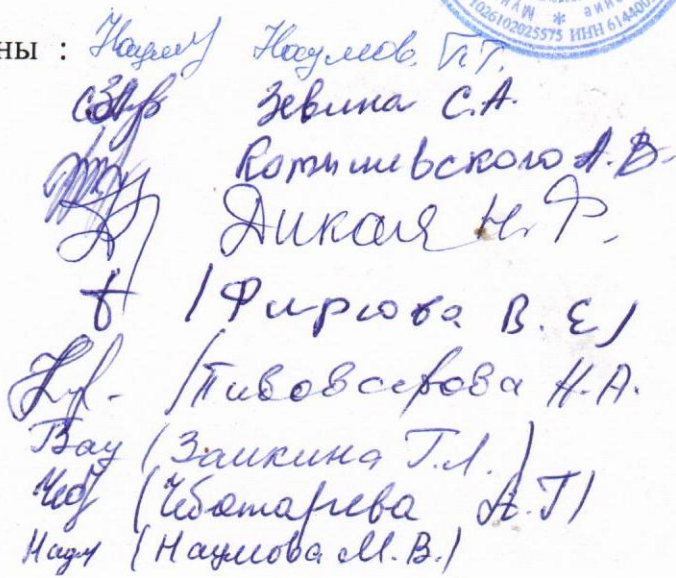 1026102025575 ИНН 614400
ны : Наумов П.Г.
Зевина С.А.
Котышевского А.В.
Дикая Н.Ф.
/ Фирсова В.Е/
/Пивоварова Н.А.
Зау (Заикина Г.Л.)
Чеб (Чеботарева А.Г)
Наум (Наумова М.В.)